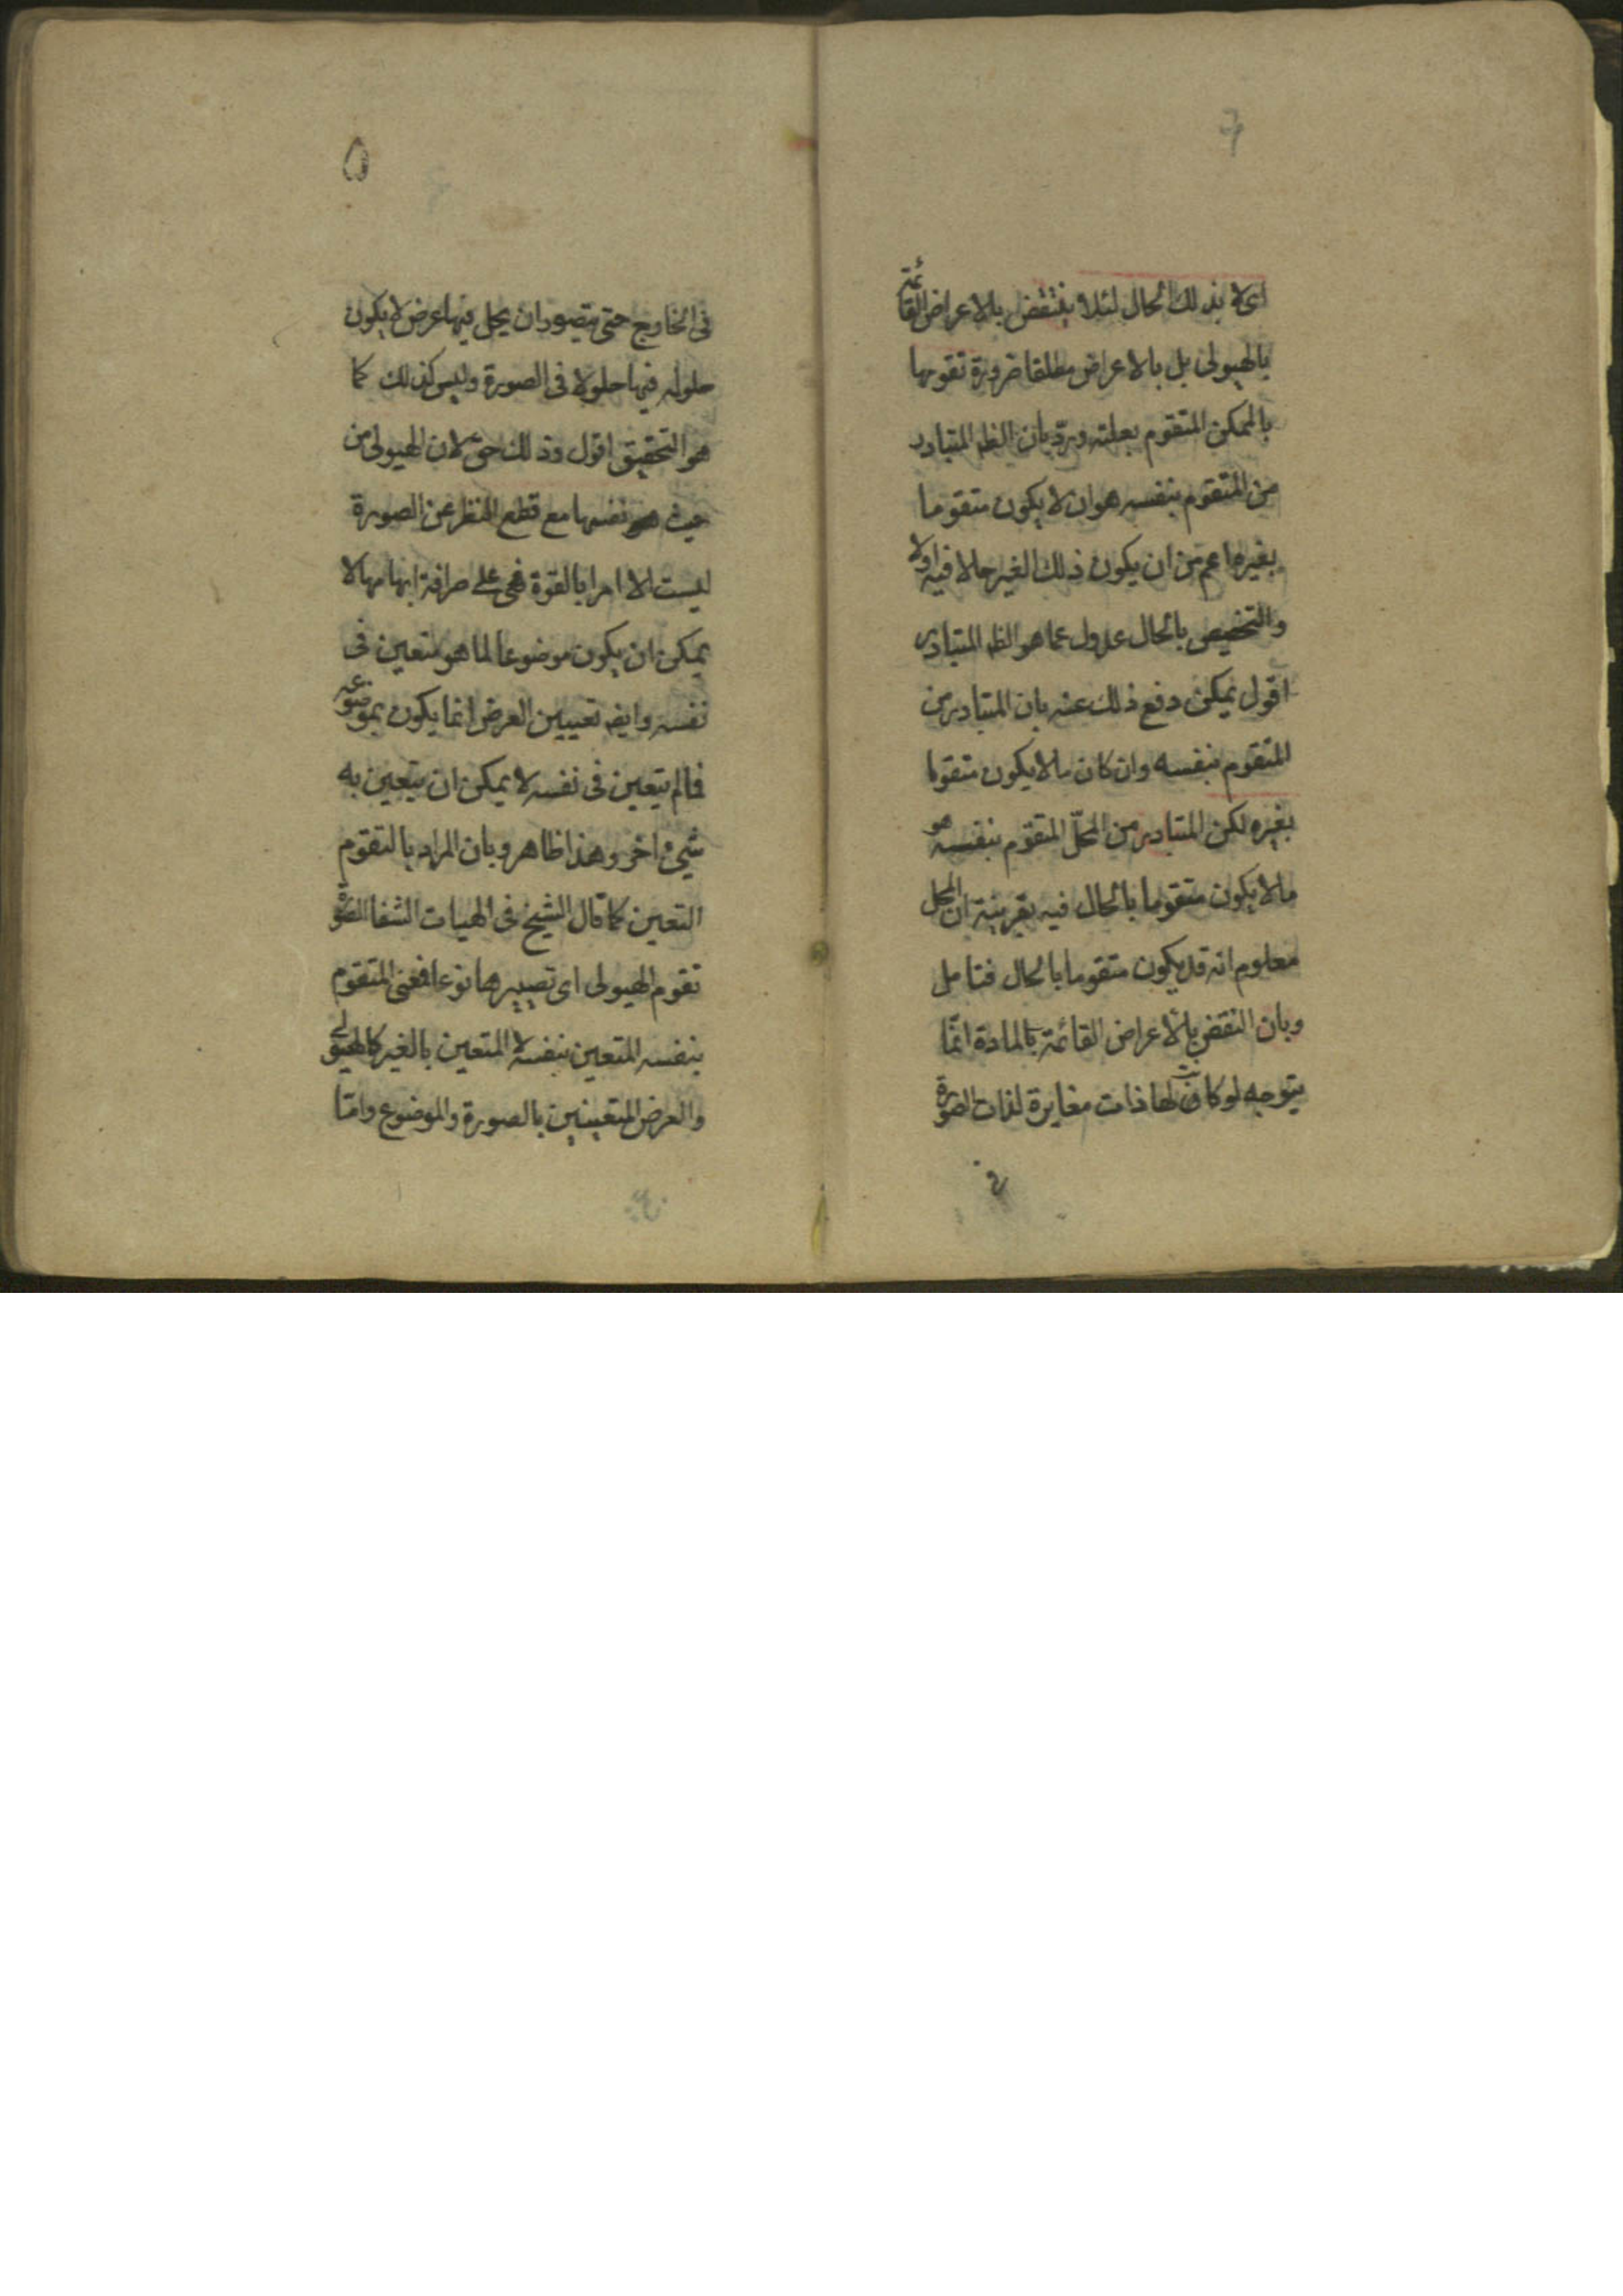 اى لا بذلك الحال لئلا ينتقض بالاعراض القائمة
بالهيولى بل بالاعراض مطلقا ضرورة تقومها
بالممكن المتقوم بعلته ورد بان الظ المتبادر
من المتقوم بنفسه هو ان لا يكون متقوما
بغيره اعم من ان يكون ذلك الغير حالا فيه اولا
والتخصيص بالحال عدول عما هو الظ المتبادر
اقول يمكن دفع ذلك عنه بان المتبادر من
المتقوم بنفسه وان كان ما لا يكون متقوما
بغيره لكن المتبادر من المحلّ المتقوّم بنفسه هو
ما لا يكون متقوما بالحال فيه بقرينة ان المحل
معلوم انه قد يكون متقوما بالحال فتامل
وبان النقض بالاعراض القائمة بالمادة انّما
يتوجه لو كانت لها ذات مغايرة لذات الصورة
فى
۵
فى الخارج حتى يتصور ان يحل فيها عرض لا يكون
حلوله فيها حلولا فى الصورة وليس كذلك كما
هو التحقيق اقول وذلك حق لان الهيولى من
حيث نفسها مع قطع النظر عن الصورة
ليست الا امرا بالقوة فهى على صرافة ابهامها لا
يمكن ان يكون موضوعا لما هو متعين فى
نفسه وايض تعيين العرض انما يكون بموضوعه
فما لم يتعين فى نفسه لا يمكن ان يتعين به
شىء اخر وهذا ظاهر وبان المراد بالتقوم
التعين كما قال الشيخ فى الهيات الشفا الصورة
تقوم الهيولى اى تصيرها نوعا فمعنى المتقوم
بنفسه المتعين بنفسه لا المتعين بالغير كالهيولى
والعرض المتعينين بالصورة والموضوع وامّا